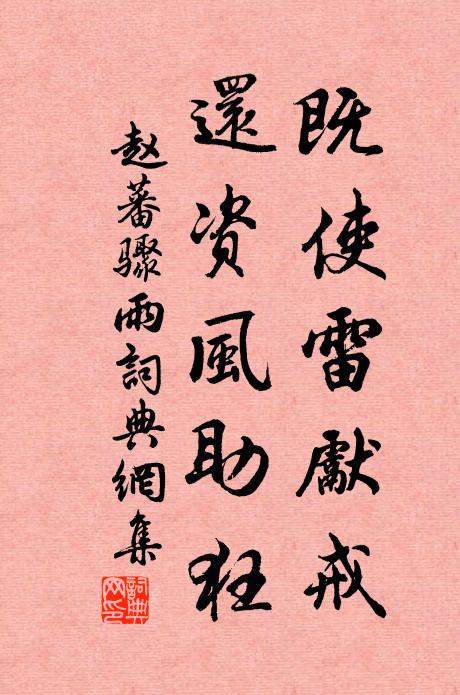 既使雷獻戒
還資風助狂
赵蕃骤雨詞典網集
詞典網印